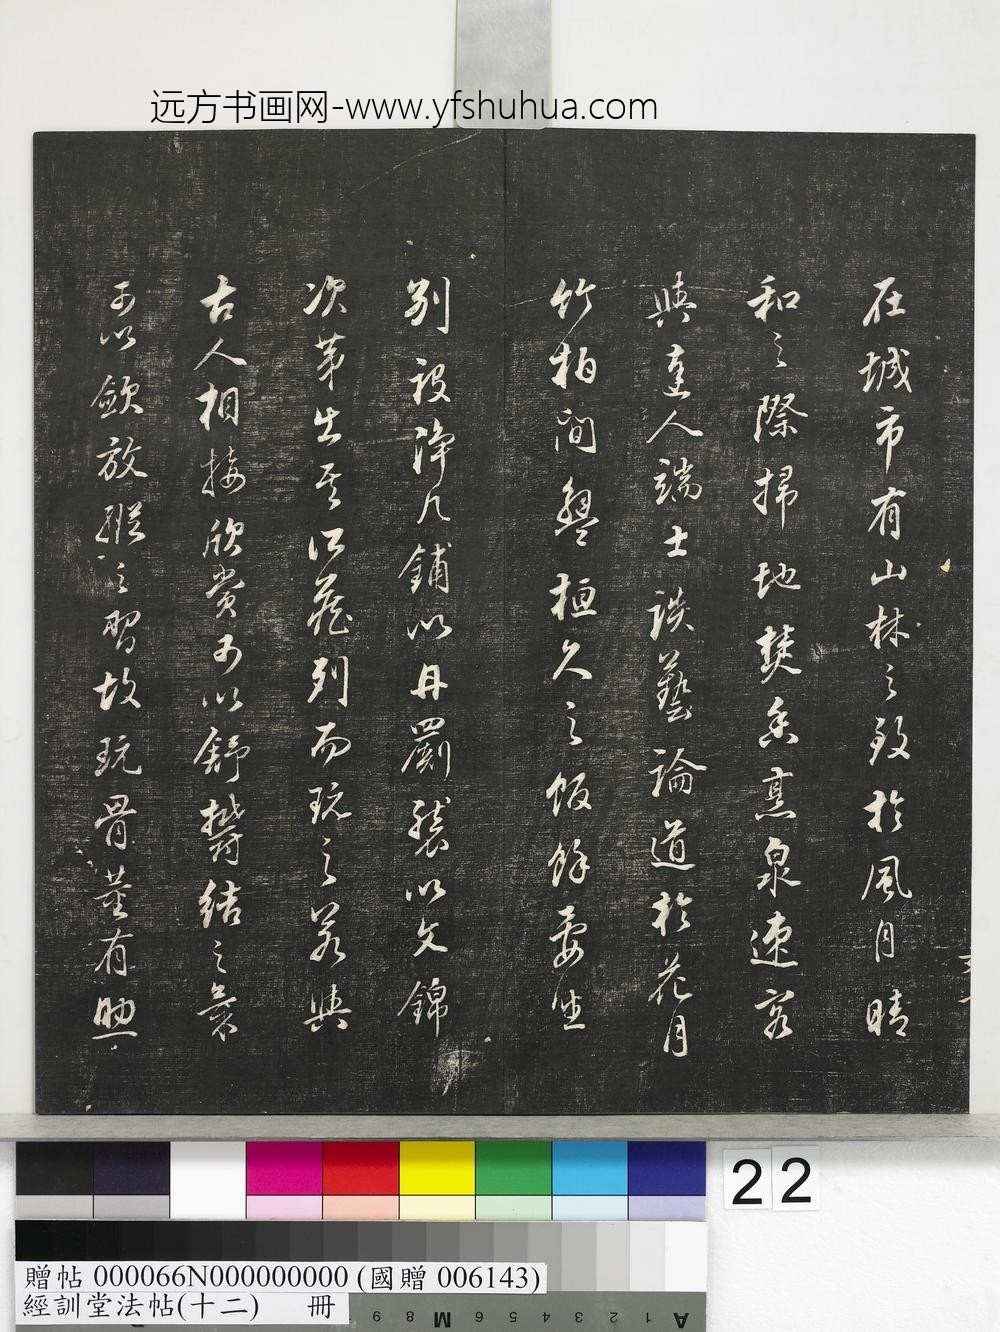 远方书画网-www.yfshuhua.com
在城市有山林之致於風月晴
和之際掃地焚香烹泉速客
與達人端士談藝論道於花月
竹柏間盤桓久之飯餘晏坐
別設淨几鋪以丹罽襲以文錦
次第出其所藏列而玩之若與
古人相接欣賞可以舒鬱結之氣
可以斂放縱之習故玩骨董有助
22
贈帖 000066N000000000 (國贈 006143)
經訓堂法帖(十二) 冊
A 1 2 3 4 5 6 M 8 9